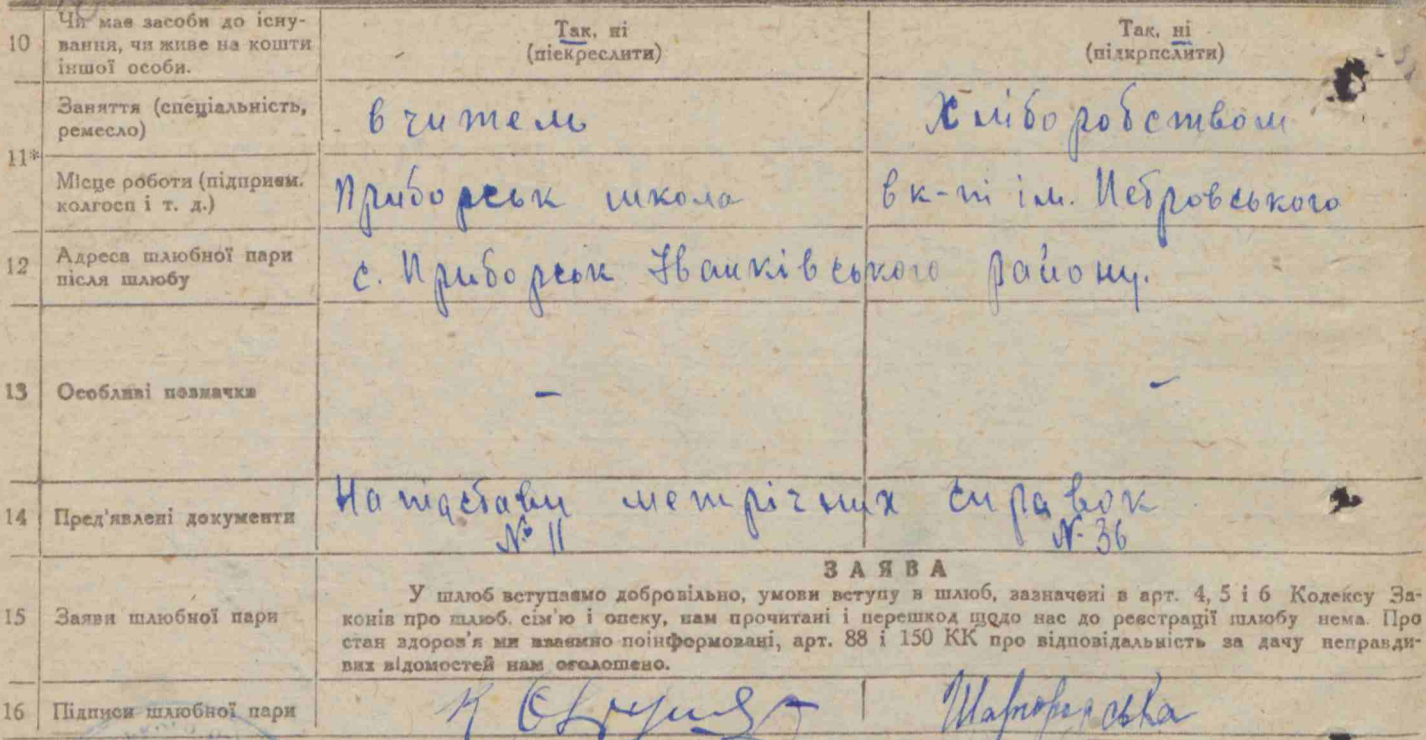 10
Чи має засоби до існу-
вання, чи живе на кошти
іншої особи.
Так, ні
(пієкреслити)
Так, ні
(підкрпслити)
11*
Заняття (спеціальність,
ремесло)
вчитель
Хліборобством
Місце роботи (підприєм.
колгосп і т. д.)
Приборськ школа
в к-пі ім. Петровського
12
Адреса шлюбної пари
після шлюбу
с. Приборськ Іванківського району.
13
Особливі позначки
–
–
14
Пред'явлені документи
На підставі метрічних справок
№ 11
№ 36
15
Заяви шлюбної пари
ЗАЯВА
У шлюб вступаємо добровільно, умови вступу в шлюб, зазначені в арт. 4, 5 і 6 Кодексу За-
конів про шлюб. сім'ю і опеку, нам прочитані і перешкод щодо нас до реєстрації шлюбу нема. Про
стан здоров'я ми взаємно поінформовані, арт. 88 і 150 КК про відповідальність за дачу неправди-
вих відомостей нам оголошено.
16
Підписи шлюбної пари